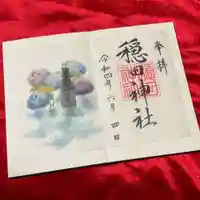 奉拝
穏田神社
令和四年六月四日